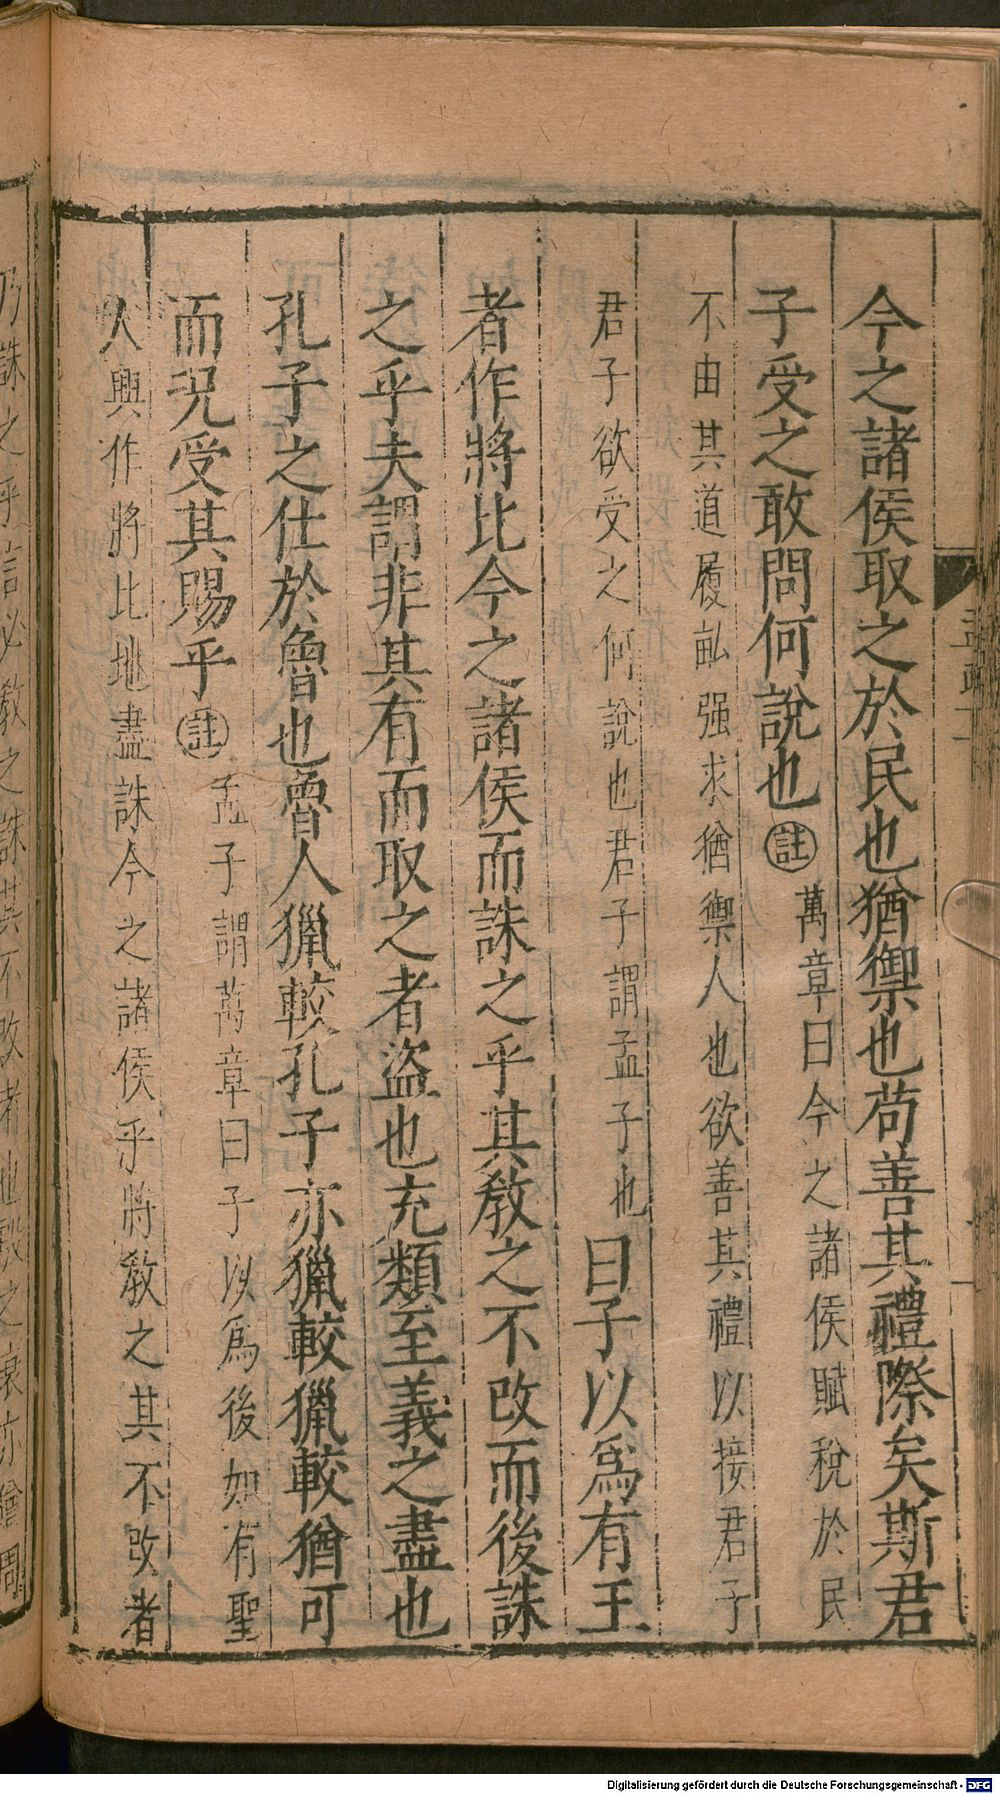 今之諸侯取之於民也猶禦也苟善其禮際矣斯君
子受之敢問何說也註萬章曰今之諸侯賦稅於民
不由其道履畝强求猶禦人也欲善其禮以接君子
君子欲受之何說也君子謂孟子也曰子以爲有王
者作將比今之諸侯而誅之乎其敎之不改而後誅
之乎夫謂非其有而取之者盜也充類至義之盡也
孔子之仕於魯也魯人獵較孔子亦獵較獵較猶可
而况受其賜乎註孟子謂萬章曰子以爲後如有聖
人興作將比地盡誅今之諸侯乎將敎之其不改者
乃誅之乎言必敎之誅其不改者也殷之衰亦猶周
Digitalisierung gefördert durch die Deutsche Forschungsgemeinschaft - DFG